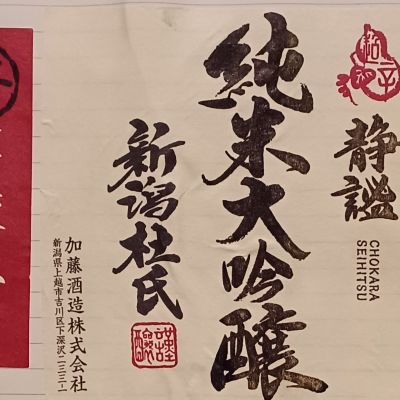 静謐
CHOKARA
SEIHITSU
純米大吟醸
新潟杜氏
謹醸
加藤酒造株式会社
新潟県上越市吉川区下深沢二三三ー一